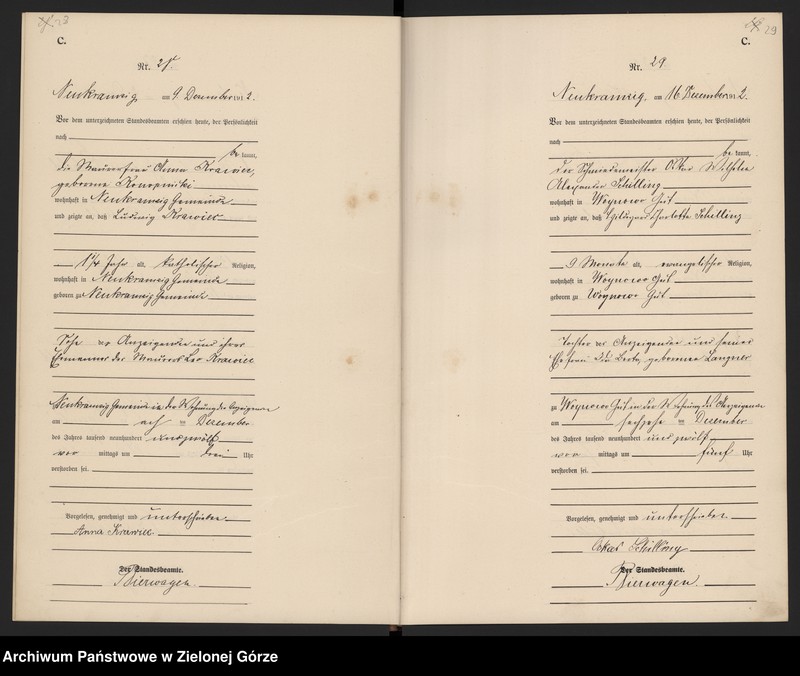 28
C.
Nr. 28.
Neukramzig am 9 Dezember 1912.
Vor dem unterzeichneten Standesbeamten erschien heute, der Persönlichkeit
nach
be kannt,
die Maurerfrau Anna Krawiec,
geborene
wohnhaft in Neukramzig Gemeinde
und zeigte an, daß Ludwig Krawiec
1¼ Jahr alt, katholischer Religion,
wohnhaft in Neukramzig Gemeinde
geboren zu Neukramzig Gemeinde
Sohn der Anzeigenden und ihres
Ehemannes des Maurers Krawiec
Neukramzig Gemeinde in der Wohnung der Anzeigenden
am acht ten Dezember
des Jahres tausend neunhundert und zwölf
vor mittags um drei Uhr
verstorben sei.
Vorgelesen, genehmigt und unterschrieben
Anna Krawiec.
Der Standesbeamte.
Bierwagen.
29
C.
Nr. 29
Neukramzig, am 16 Dezember 1912.
Vor dem unterzeichneten Standesbeamten erschien heute, der Persönlichkeit
nach
be kannt,
der Schmiedemeister Oskar Wilhelm
Alexander Schilling
wohnhaft in Woynowo Gut
und zeigte an, daß Charlotte Schilling
9 Monate alt, evangelischer Religion,
wohnhaft in Woynowo Gut
geboren zu Woynowo Gut
Tochter des Anzeigenden und seiner
Ehefrau Ida Berta, geborenen Langner
zu Woynowo Gut in der Wohnung des Anzeigenden
am sechzehn ten Dezember
des Jahres tausend neunhundert und zwölf
vor mittags um fünf Uhr
verstorben sei.
Vorgelesen, genehmigt und unterschrieben
Oskar Schilling
Der Standesbeamte.
Bierwagen.
Archiwum Państwowe w Zielonej Górze